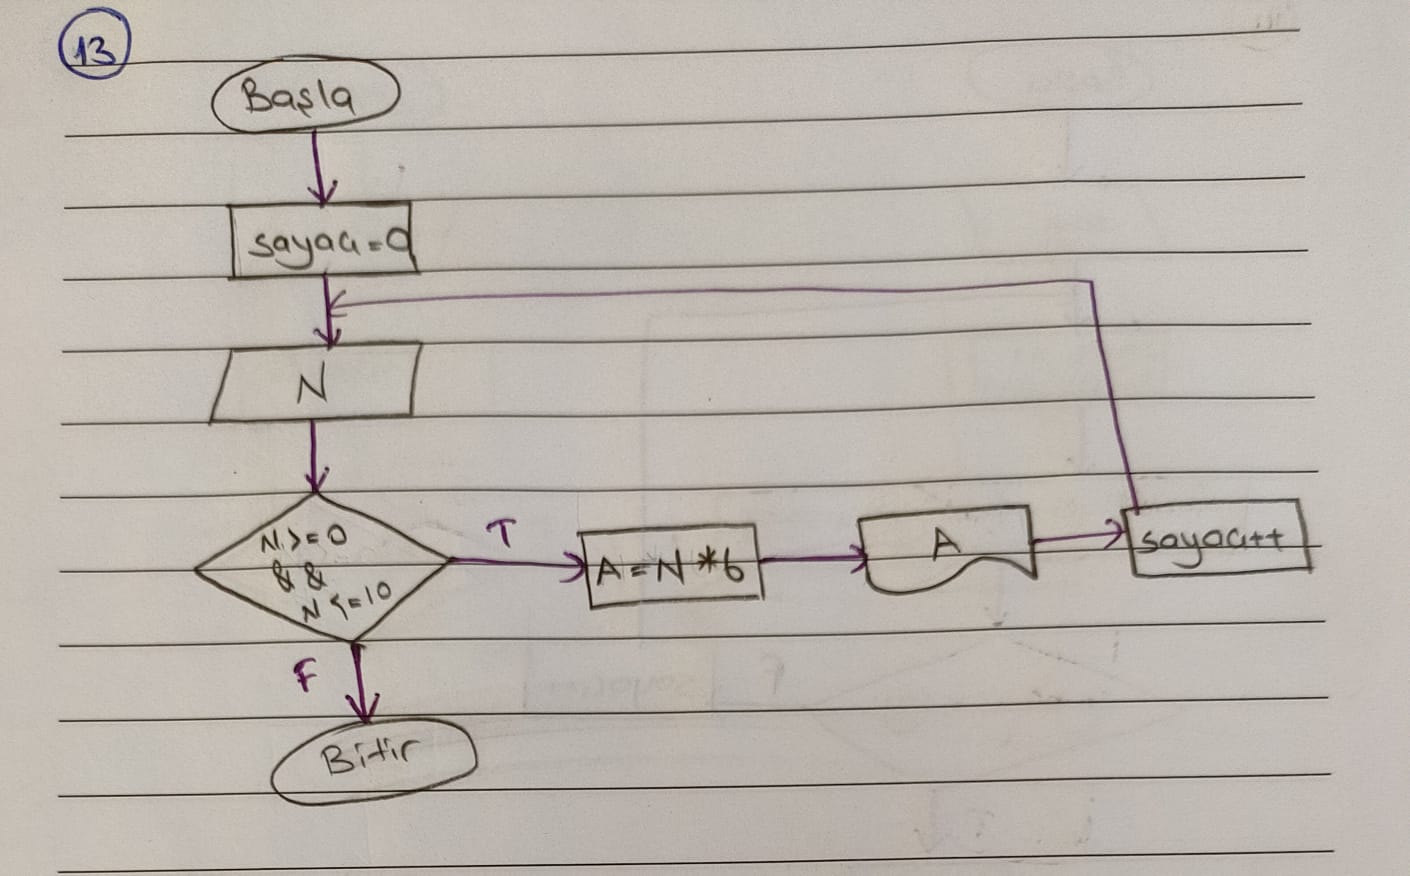 13
Başla
sayacı=0
N
N>=0
&&
N<=10
T
A=N*6
A
sayacı++
F
Bitir